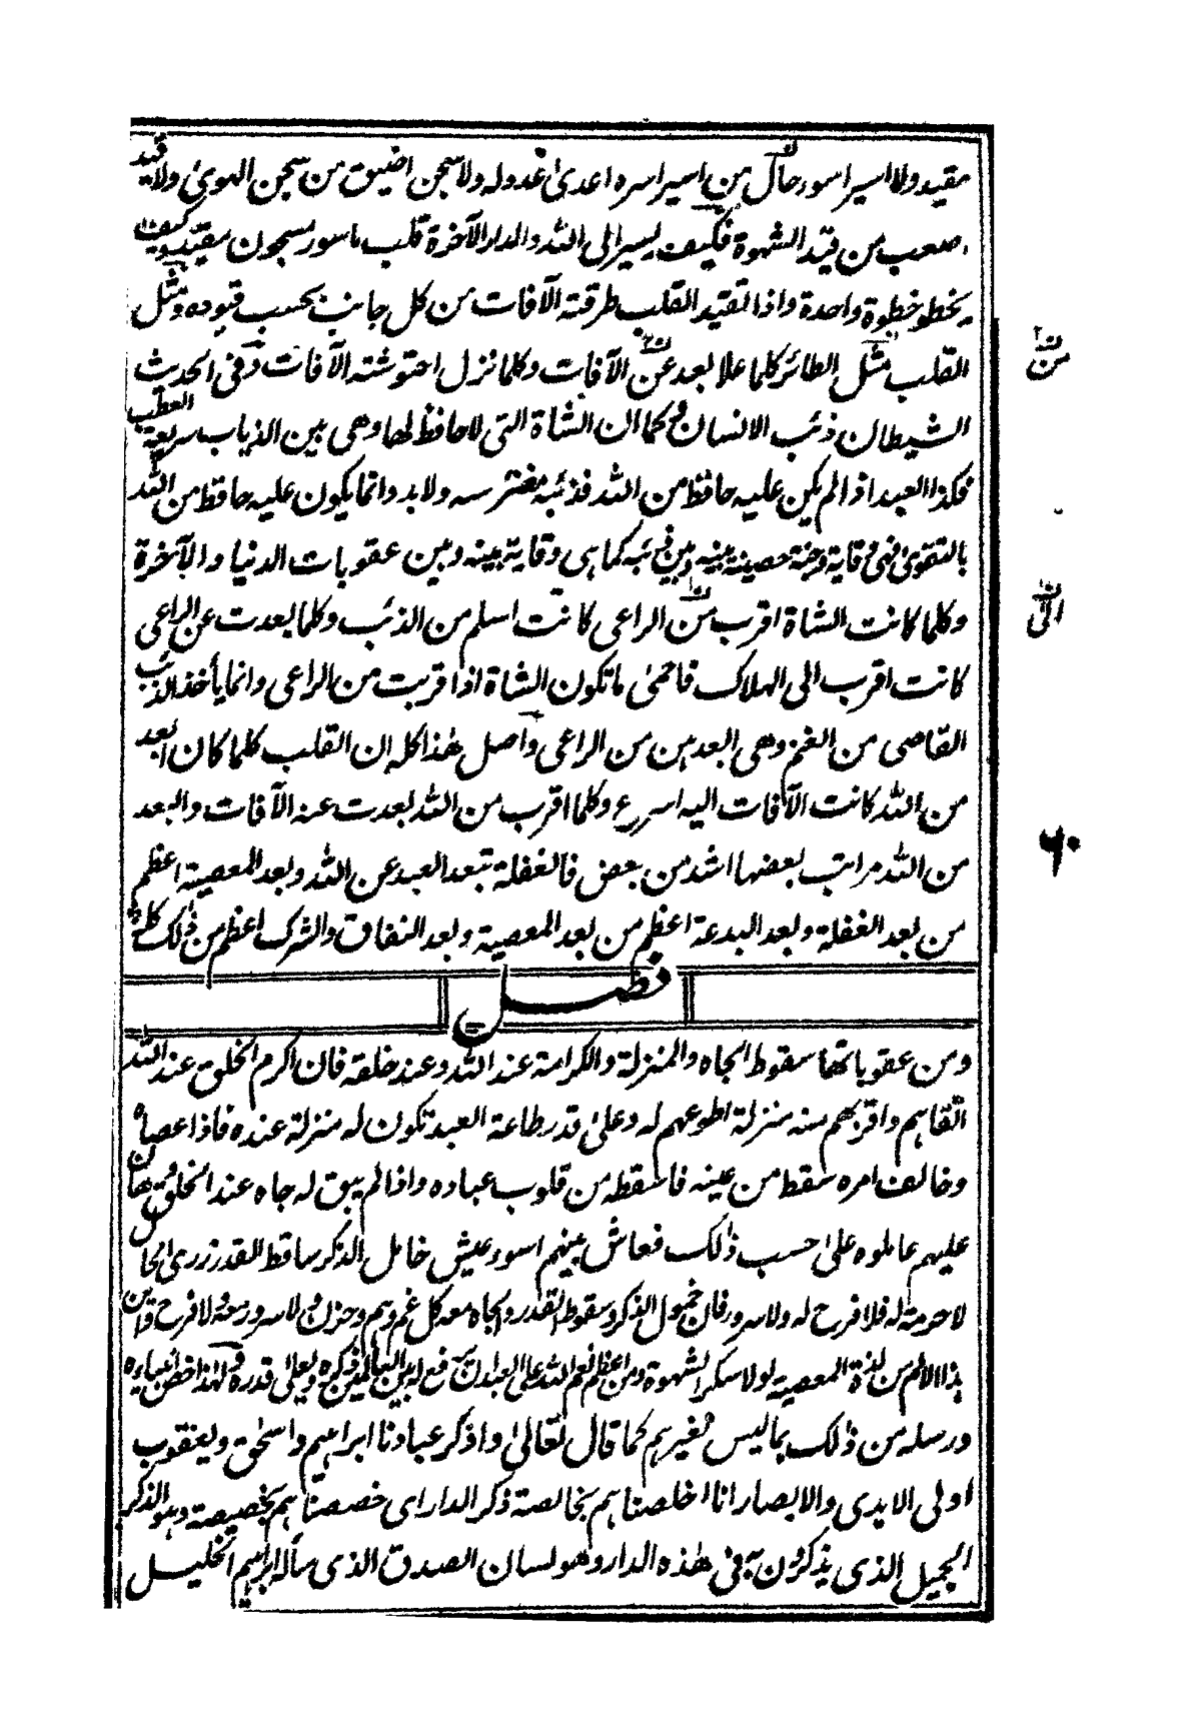 مقيد ولا اسير اسوء حالا من اسير اسره اعدى عدو له ولا سجن اضيق من سجن الهوى ولا قيد
اصعب من قيد الشهوة فكيف يسير الى الله والدار الآخرة قلب ماسور مسجون مقيد وكيف
يخطو خطوة واحدة واذا تقيد القلب طرقته الآفات من كل جانب بحسب قيوده ومثل
القلب مثل الطائر كلما علا بعد عن الآفات وكلما نزل احتوشته الآفات وفى الحديث
الشيطان ذئب الانسان وكما ان الشاة التى لا حافظ لها وهى بين الذياب سريعة العطب
فكذا العبد اذا لم يكن عليه حافظ من الله فذئبه مفترسه ولا بد وانما يكون عليه حافظ من الله
بالتقوى فهى وقاية وجنة حصينة بينه وبين ذئبه كما هى وقاية بينه وبين عقوبات الدنيا والآخرة
وكلما كانت الشاة اقرب من الراعى كانت اسلم من الذئب وكلما بعدت عن الراعى
كانت اقرب الى الهلاك فاحمى ما تكون الشاة اذا قربت من الراعى وانما يأخذ الذئب
القاصى من الغنم وهى ابعدهن من الراعى واصل هذا كله ان القلب كلما كان ابعد
من الله كانت الآفات اليه اسرع وكلما اقرب من الله بعدت عنه الآفات والبعد
من الله مراتب بعضها اشد من بعض فالغفلة تبعد العبد عن الله وبعد المعصية اعظم
من بعد الغفلة وبعد البدعة اعظم من بعد المعصية وبعد النفاق والشرك اعظم من ذلك كله
فصل
ومن عقوباتها سقوط الجاه والمنزلة والكرامة عند الله وعند خلقه فان اكرم الخلق عند الله
اتقاهم واقربهم منه منزلة اطوعهم له وعلى قدر طاعة العبد تكون له منزلة عنده فاذا عصاه
وخالف امره سقط من عينه فاسقطه من قلوب عباده واذا لم يبق له جاه عند الخلق وهان
عليهم عاملوه على حسب ذلك فعاش بينهم اسوء عيش خامل الذكر ساقط القدر زرى الحال
لا حرمة له فلا فرح له ولا سرور فان خمول الذكر وسقوط القدر والجاه معه كل غم وهم وحزن ولا سرور معه ولا فرح واين
هذا الالم من لذة المعصية لولا سكر الشهوة ومن اعظم نعم الله على العبد ان يرفع له بين العالمين ذكره ويعلى قدره ولهذا خص انبياءه
ورسله من ذلك بما ليس لغيرهم كما قال تعالى واذكر عبادنا ابراهيم واسحق ويعقوب
اولى الايدى والابصار انا اخلصناهم بخالصة ذكر الدار اى خصصناهم بخصيصة وهو الذكر
الجميل الذى يذكرون به فى هذه الدار وهو لسان الصدق الذى سأله ابراهيم الخليل
من
الى
٦٠